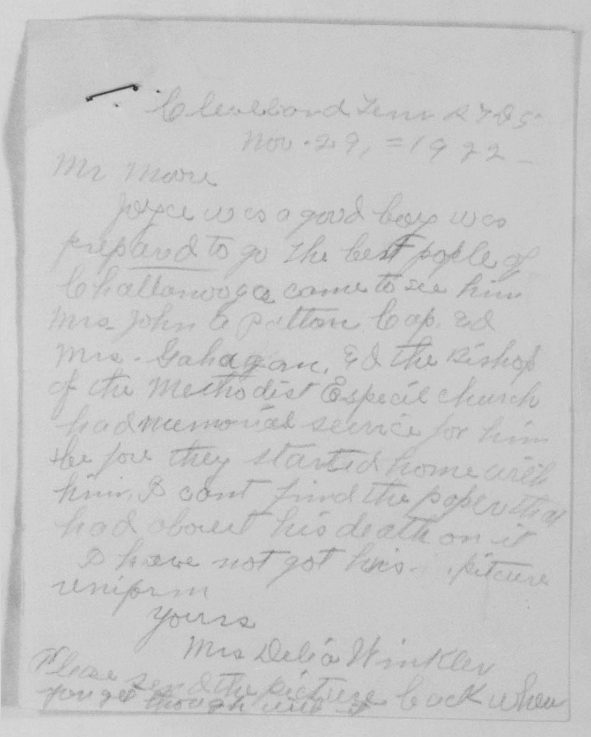 Cleveland Tenn R F D 5
Nov. 29, = 1922
Mr Moore
Joyce was a good boy was
prepared to go The best pople of
Chattanooga came to see him
Mrs John A Patton Cap. &d
Mrs. Gahagan, &d the Bishop
of the Methodist Especil church
had memorial service for him
be fore they started home with
him. I cant find the paper that
had about his death on it
I have not got his pitcure
uniform
Yours
Mrs Delia Winkler
Please send the picture back when
you get through with it